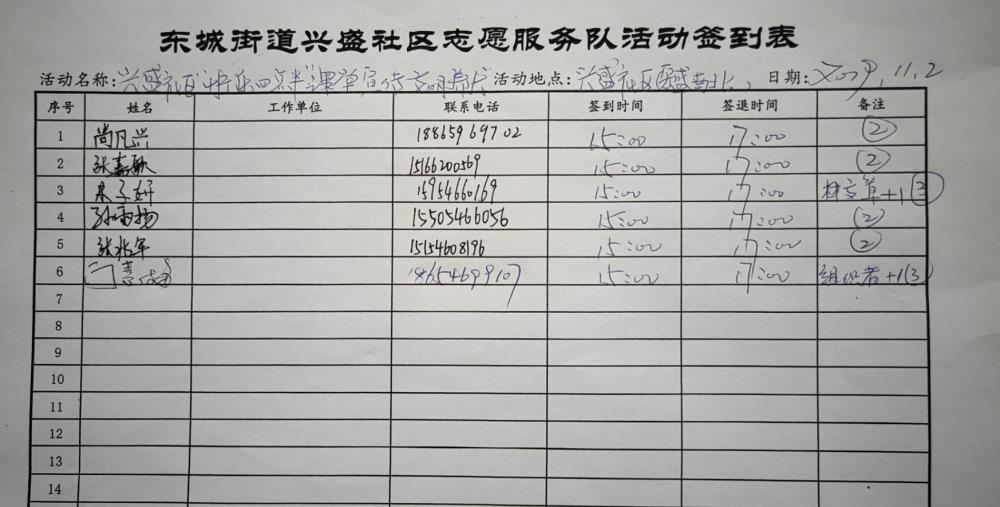 东城街道兴盛社区志愿服务队活动签到表
活动名称:兴盛社区 活动地点:兴盛社区 日期: 11.2
序号 姓名 工作单位 联系电话 签到时间 签退时间 备注
1 尚凡兴 18865969702 15:00 17:00 ②
2 张嘉 15166200569 15:00 17:00 ②
3 子妍 15954660169 15:00 17:00 +1 ③
4 15505466056 15:00 17:00 ②
5 张兆军 15154608196 15:00 17:00 ②
6 18654699107 15:00 17:00 组织者+1(3)
7
8
9
10
11
12
13
14